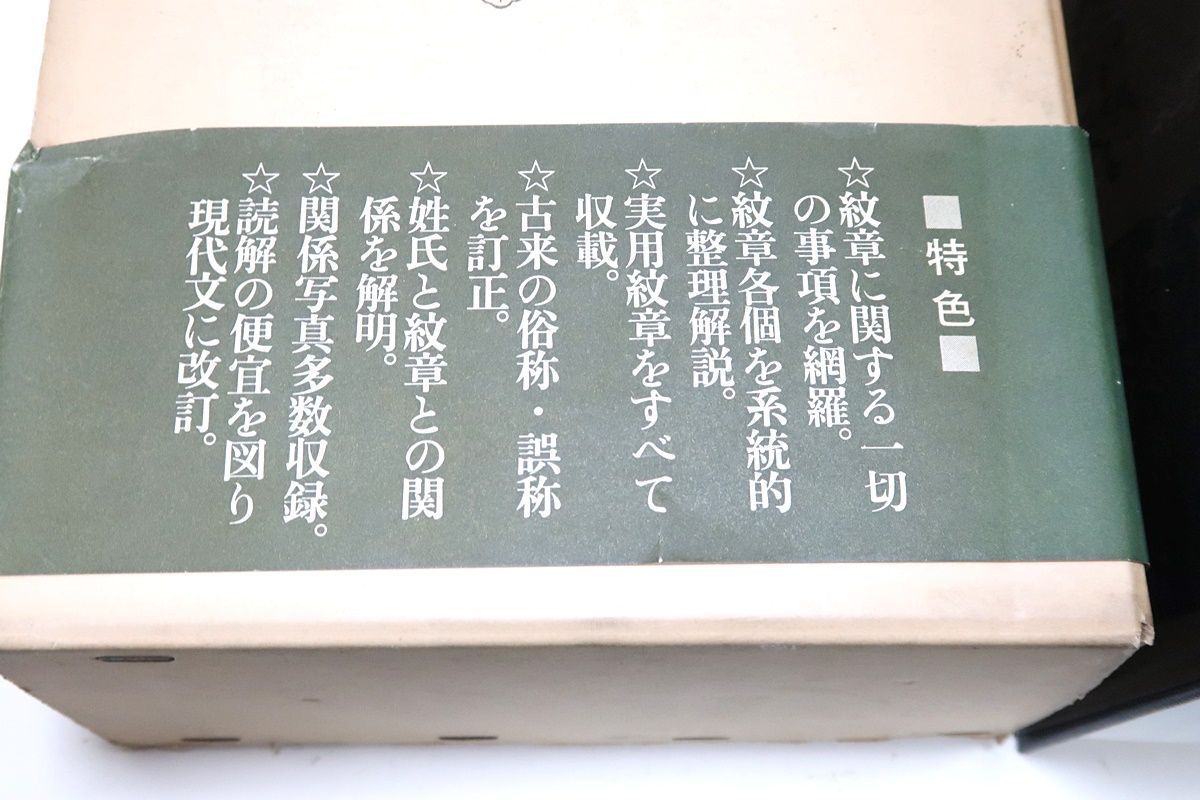 ■特色■
☆紋章に関する一切
の事項を網羅。
☆紋章各個を系統的
に整理解説。
☆実用紋章をすべて
収載。
☆古来の俗称・誤称
を訂正。
☆姓氏と紋章との関
係を解明。
☆関係写真多数収録。
☆読解の便宜を図り
現代文に改訂。